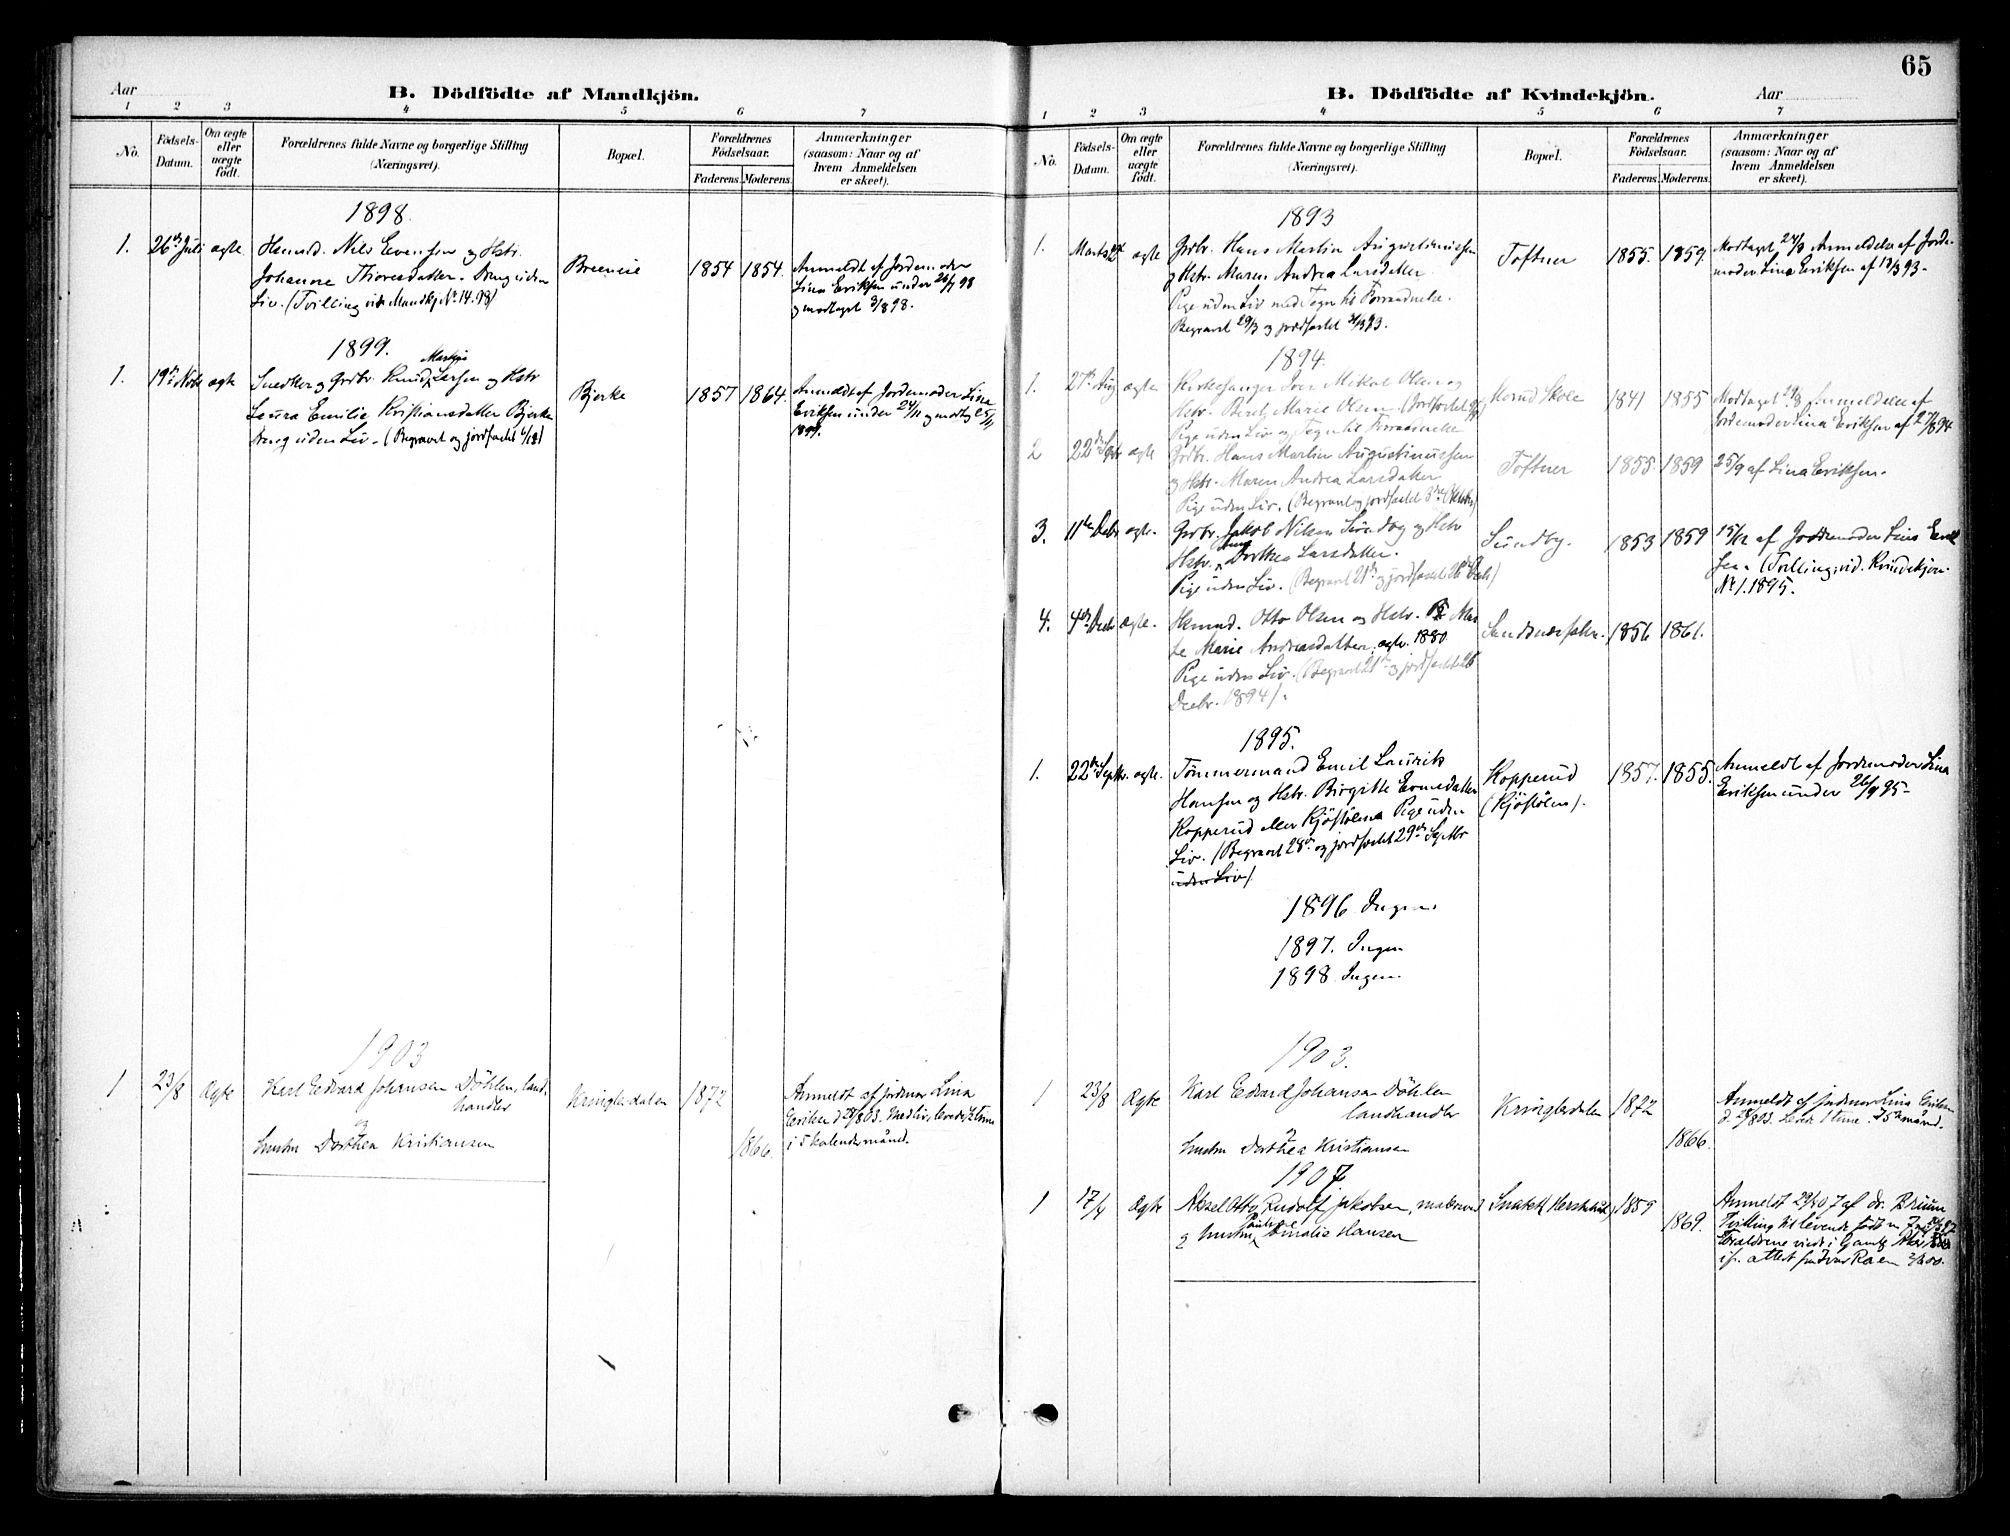 65
Aar
B. Dödfödte af Mandkjön.
1 2 3 4 5 6 7
No.
Födsels-Datum.
Om ægte eller uægte födt.
Forældrenes fulde Navne og borgerlige Stilling
(Næringsvei).
Bopæl.
Forældrenes Födselsaar.
Faderens. Moderens.
Anmærkninger
(saasom: Naar og af
hvem Anmeldelsen
er skeet).
1898.
1. 26de Juli ægte Hsmd. Nils Evensen og Hstr.
Johanne Thoresdatter. Dreng uden
Liv. (Tvilling Mandkj. No. 14. 98)
1854 1854.
Anmeldt af Jordemoder
Lina Eriksen under 26/7 98
og modtaget 3/8 98.
1899.
1. 19de Nvbr ægte Snedker og Grdbr. Knud Larsen og Hstr
Laura Emilie Kristiansdatter Bjerke
Dreng uden Liv. (Begravet og jordfæstet
Bjerke 1857 1864.
Anmeldt af Jordemoder Lina
Eriksen under 24/11 og modtg 25/11
1899.
1903
1 23/8 Ægte Karl Edvard Johansen Döhlen, land-
handler
og
hustru Dorthea Kristiansen
Kringlerdalen 1872
1866.
Anmeldt af jordmor Lina
Eriksen d. 28/8 03.
i 5 kalendermånd.
B. Dödfödte af Kvindekjön.
Aar
1 2 3 4 5 6 7
No.
Födsels-Datum.
Om ægte eller uægte födt.
Forældrenes fulde Navne og borgerlige Stilling
(Næringsvei).
Bopæl.
Forældrenes Födselsaar.
Faderens. Moderens.
Anmærkninger
(saasom: Naar og af
hvem Anmeldelsen
er skeet).
1893
1. Marts ægte Grdbr. Hans Martin Augustinussen
og Hstr. Maren Andrea Larsdatter
Pige uden Liv med Tegn til Forraadnelse.
Begravet 29/3 og jordfæstet
Toftner 1855. 1859.
Modtaget Anmeldelse af Jorde-
moder Lina Eriksen af 13/3 93.
1894.
1. 27de Aug ægte Kirkesanger Iver Mikal Olsen og
Hstr. Marie Olsen. (Jordfæstet
Pige uden Liv og Tegn til Forraadnelse
Skole 1841 1855
Modtaget Anmeldelse af
Jordemoder Lina Eriksen af 27/8 94
2 22de Sptr ægte Grdbr. Hans Martin Augustinussen
og Hstr. Maren Andrea Larsdatter
Pige uden Liv. (Begravet og jordfæstet 3de Oktober)
Toftner 1855 1859 25/9 af Lina Eriksen.
3. 11te Decbr ægte. Grdbr. Jakob Nilsen Sundby og Hstr
Hstr. Dorthea Larsdatter.
Pige uden Liv. (Begravet 21de og jordfæstet 26de Decb)
Sundby. 1853 1859
15/12 af Jordemoder Lina Erik
sen. (Tvilling, vid. Kvindekjøn
No. 1. 1895.
4. 4de Decbr Ægte. Hsmd. Otto Olsen og Hstr. Mar-
te Marie Andreasdatter, ægtv. 1880
Pige uden Liv. (Begravet 21de og jordfæstet 26
Decbr. 1894).
1856 1861.
1895.
1. 22de Septbr. ægte. Tömmermand Emil Laurits
Hansen og Hstr. Birgitte Evensdatter
Kopperud eller Kjöstölen. Pige uden
Liv. (Begravet 28de og jordfæstet 29de Septbr
uden Liv).
Kopperud
(Kjöstölen).
1857. 1855.
Anmeldt af Jordemoder Lina
Eriksen under 26/9 95
1896 Ingen.
1897. Ingen
1898 Ingen.
1903.
1 23/8 Ægte Karl Edvard Johansen Döhlen
landhandler
og
hustru Dorthea Kristiansen
Kringlerdalen 1872
1866.
Anmeldt af jordmor Lina Eriksen
d. 28/8 03. Levde 1 time. I 5te månd.
1907
1 17/4 Ægte Aksel Otto Rudolf Jakobsen,
og hustru Pauline Amalie Hansen
1859
1869.
Anmeldt af dr. Bruun
Tvilling til levende födt
Forældrene viede i
ifl. attest fra